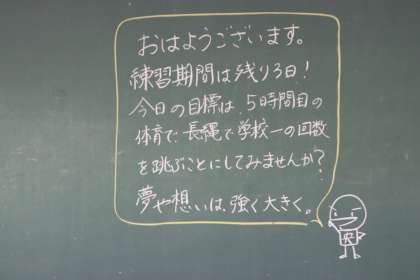 おはようございます。
練習期間は残り3日！
今日の目標は、5時間目の
体育で、長縄で学校一の回数
を跳ぶことにしてみませんか？
夢や想いは、強く大きく。